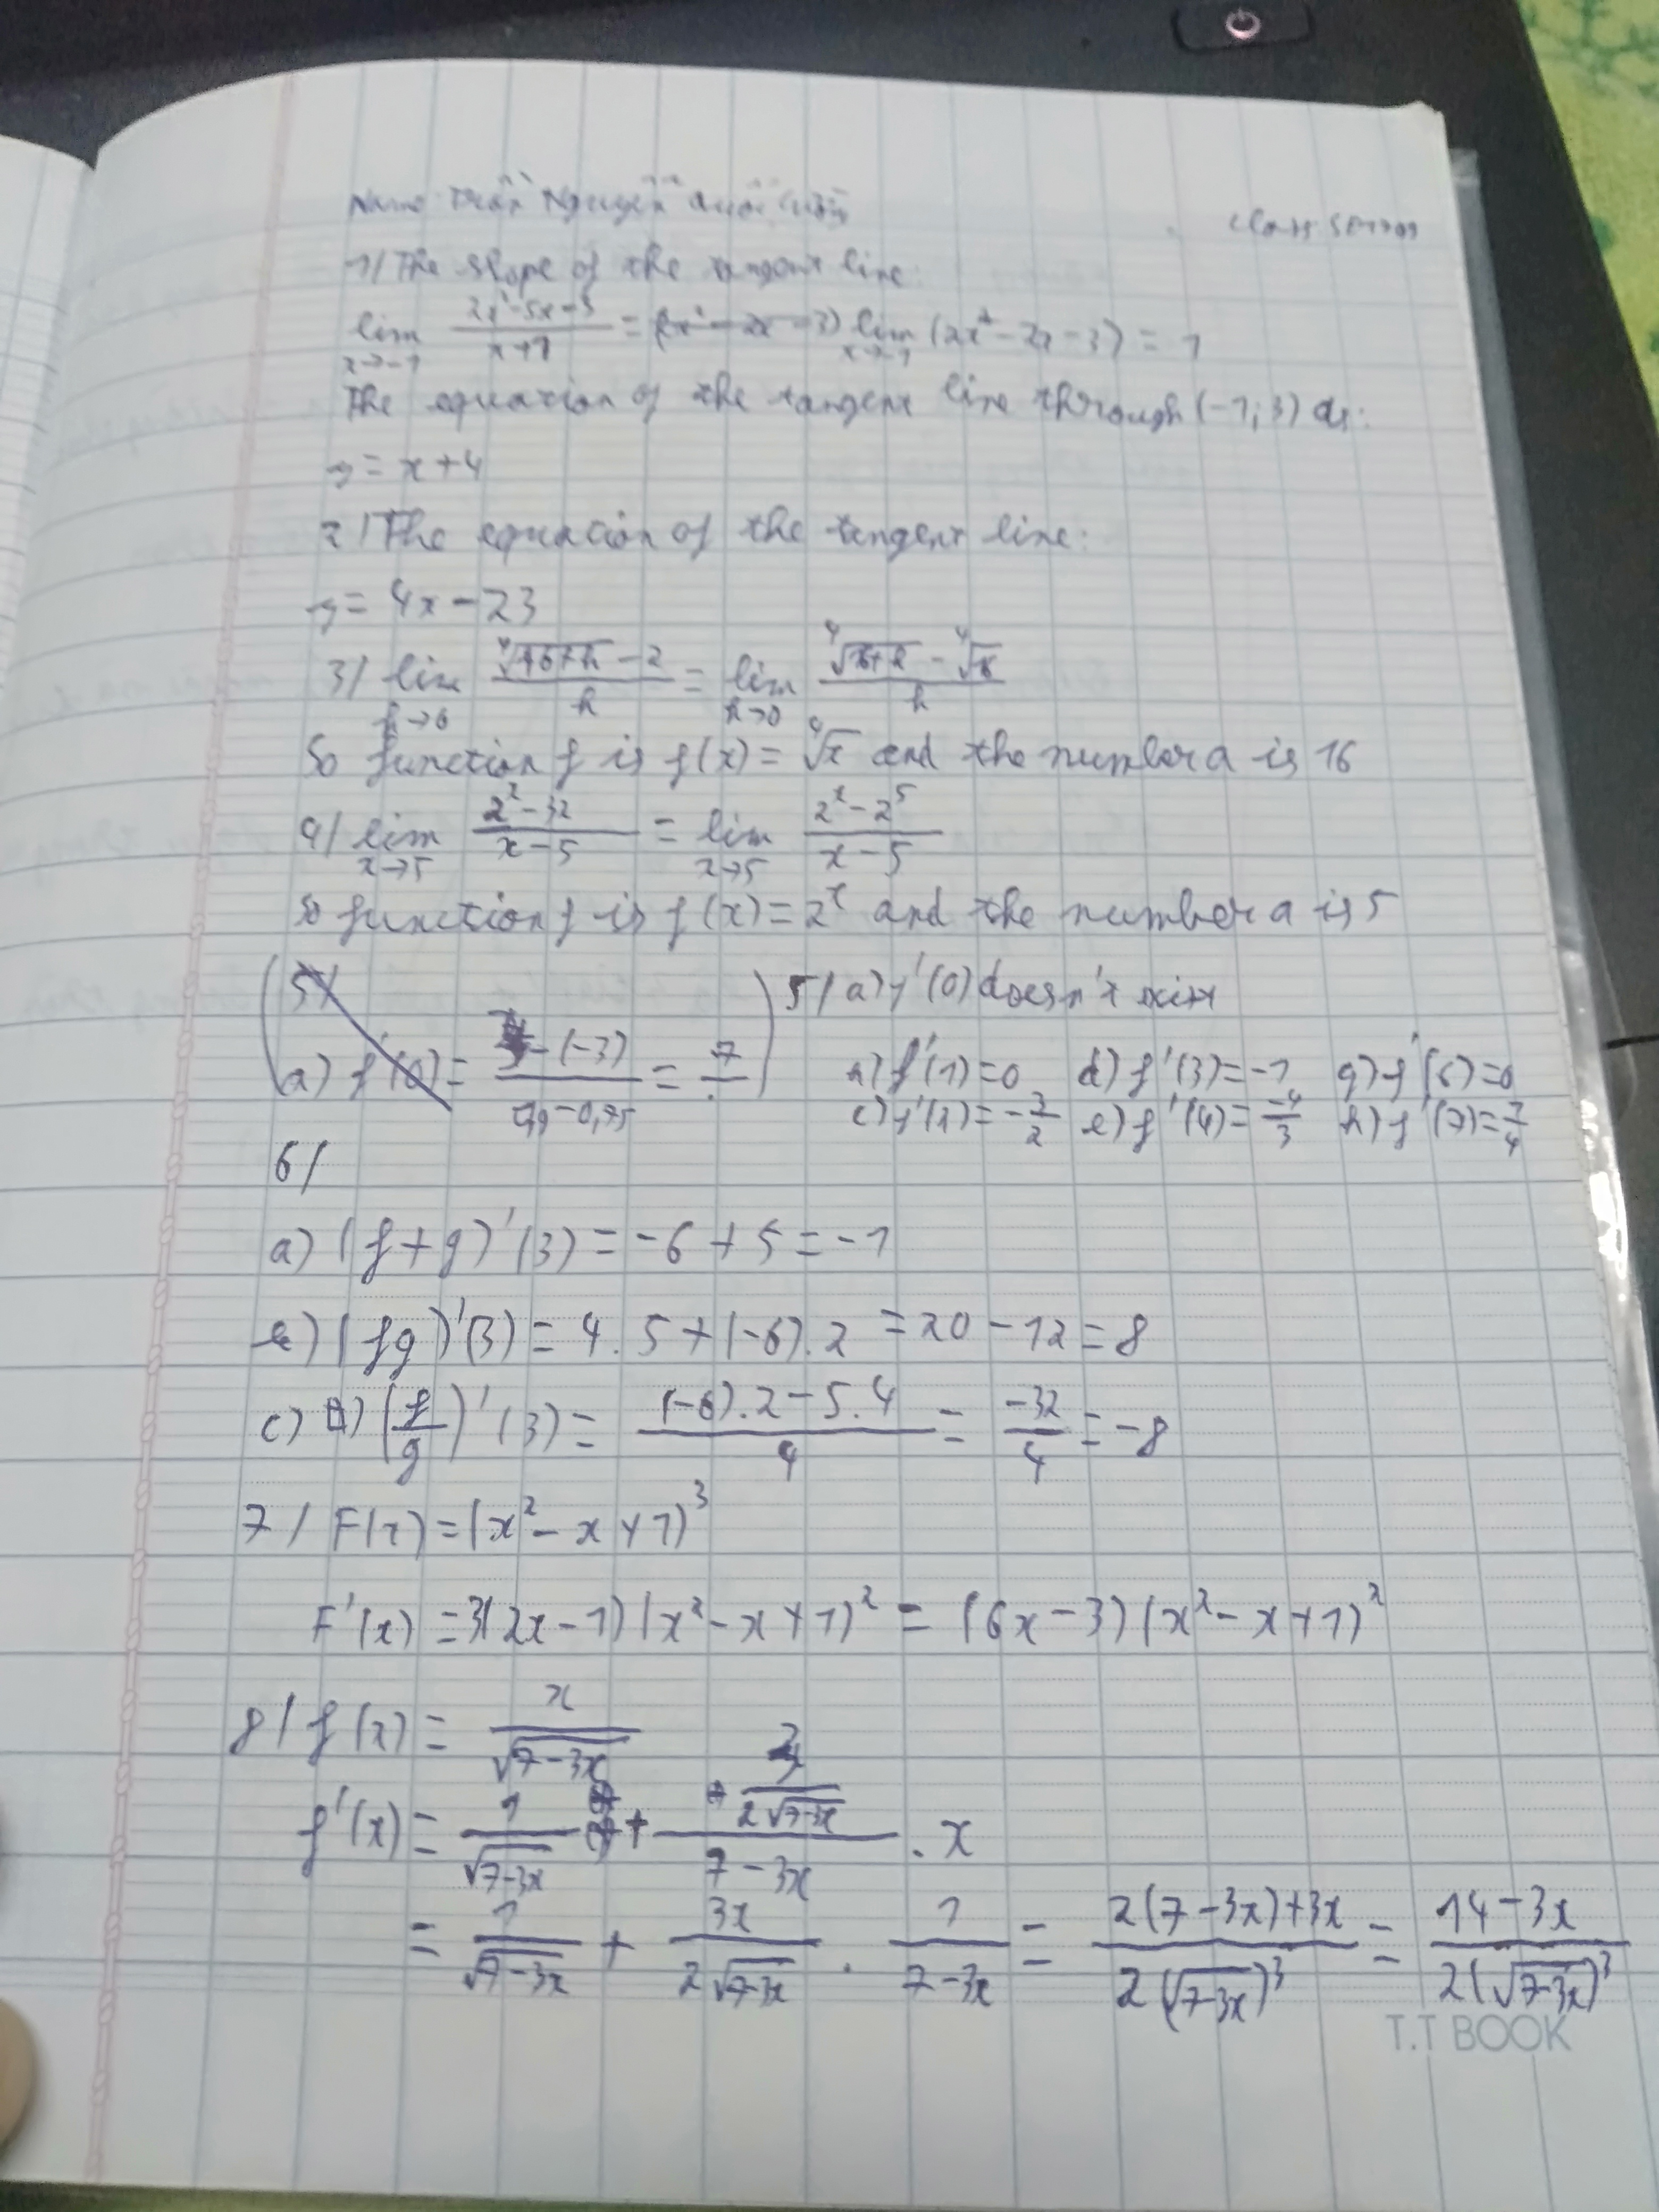 Name: Trần Nguyễn Quốc
Class SE1709
1/ The slope of the tangent line:
lim x→-1 (2x³-5x-3)/(x+1) = lim x→-1 (2x²-2x-3) = 1
The equation of the tangent line through (-1;3) is:
y = x+4
2/ The equation of the tangent line:
y = 4x-23
3/ lim h→0 (⁴√(16+h) - 2)/h = lim h→0 (⁴√(x+h) - ⁴√x)/h
So function f is f(x) = ⁴√x and the number a is 16
4/ lim x→5 (2ˣ-32)/(x-5) = lim x→5 (2ˣ-2⁵)/(x-5)
So function f is f(x) = 2ˣ and the number a is 5
5/
a) f'(0) = (-(-3))/(-0,75) = 7/
5/ a) f'(0) doesn't exist
b) f'(1)=0 d) f'(3)=-1 g) f'(6)=0
c) f'(2)=-3/2 e) f'(4)=-4/3 h) f'(7)=7/4
6/
a) (f+g)'(3) = -6+5 = -1
b) (fg)'(3) = 4.5+(-6).2 = 20-12 = 8
c) (f/g)'(3) = ((-6).2-5.4)/4 = -32/4 = -8
7/ F(x) = (x²-x+1)³
F'(x) = 3(2x-1)(x²-x+1)² = (6x-3)(x²-x+1)²
8/ f(x) = x/√(7-3x)
f'(x) = 1/√(7-3x) + (3/(2√(7-3x)))/(7-3x) . x
= 1/√(7-3x) + 3x/(2√(7-3x)) . 1/(7-3x) = (2(7-3x)+3x)/(2(√(7-3x))³) = (14-3x)/(2(√(7-3x))³)
T.T BOOK